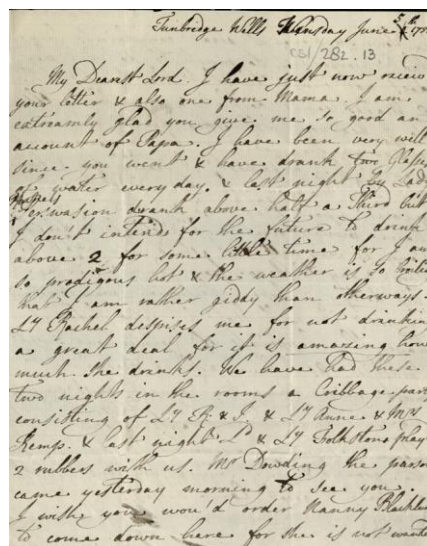 Tunbridge Wells Thursday June 5th 17
CS1/282.13
My Dearest Lord. I have just now receiv
your letter & also one from Mama. I am
extreamly glad you give me so good an
account of Papa. I have been very well
since you went & have drank two Glasses
of water every day. & last night By Lad
Rachels
Perswasion drank above half a Third but
I don't intends for the future to drink
above 2 for some little time for I am
so prodigous hot & the weather is so
that I am rather giddy than otherways.
Ly Rachel despises me for not drinkin
a great deal for it is amazing how
much She drinks. We have had these
two nights in the rooms a Cribbage part
consisting of Ly R & I. & Ly Anne & Mrs
Kemp. & last night Ld & Ly play
2 rubbers with us. Mr Dowding the parson
came yesterday morning to see you.
I wish you wou'd order Nanny
to come down here for she is not wante